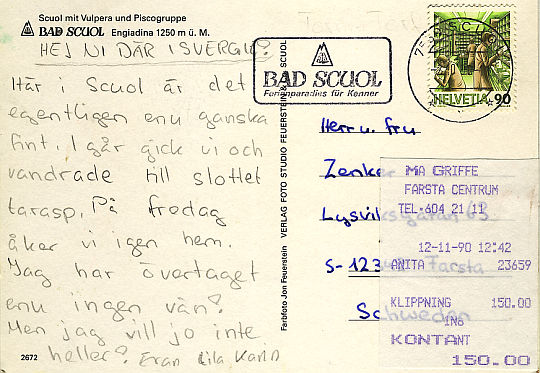 Scuol mit Vulpera und Piscogruppe
BAD SCUOL Engiadina 1250 m ü. M.
HEJ NI DÄR I SVERGIE?
Här i Scuol är det
egentligen enu ganska
fint. I går gick vi och
vandrade till slottet
tarasp. På fredag
åker vi igen hem.
Jag har övertaget
enu ingen vän?
Men jag vill jo inte
heller? Eran lila Karin
2672
Farbfoto Jon Feuerstein VERLAG FOTO STUDIO FEUERSTEIN SCUOL
BAD SCUOL
Ferienparadies für Kenner
HELVETIA 90
Herr u. Frau
Zenker
Lysvik
S-123 Farsta
Schweden
MA GRIFFE
FARSTA CENTRUM
TEL:604 21 11
12-11-90 12:42
ANITA 23659
KLIPPNING 150.00
1No
KONTANT
150.00